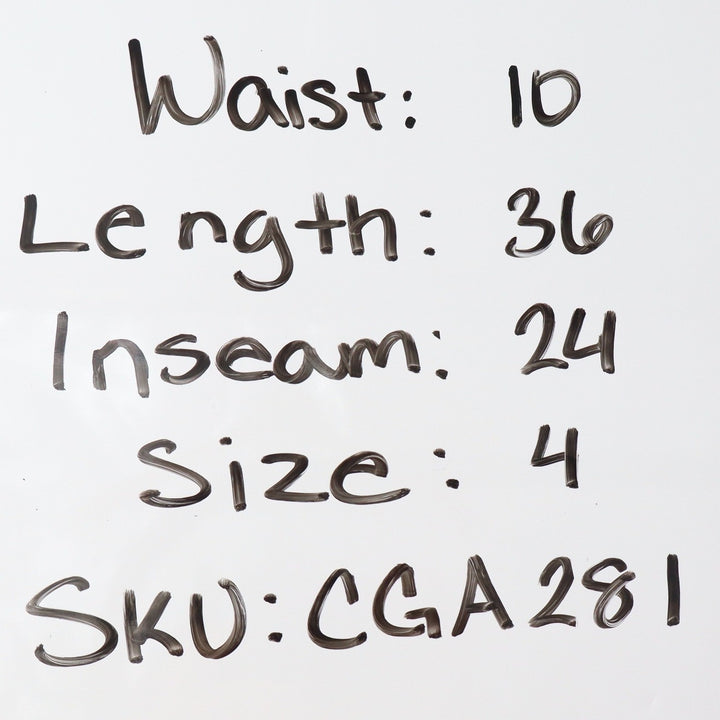 Waist: 10
Length: 36
Inseam: 24
Size: 4
SKU: CGA281